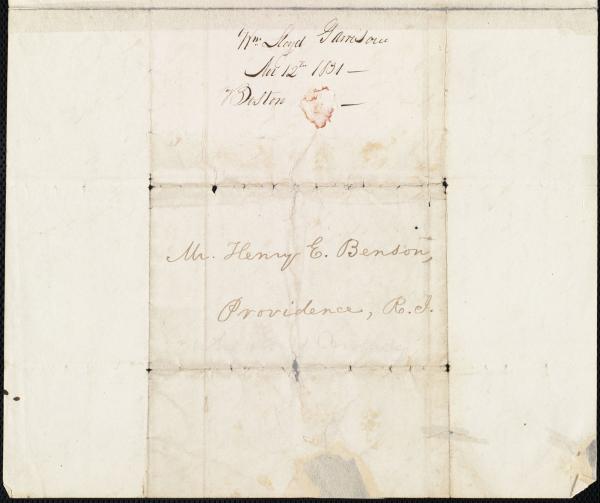 Wm. Lloyd Garrison
12th 1831 —
Boston —
Mr. Henry E. Benson,
Providence, R.I.